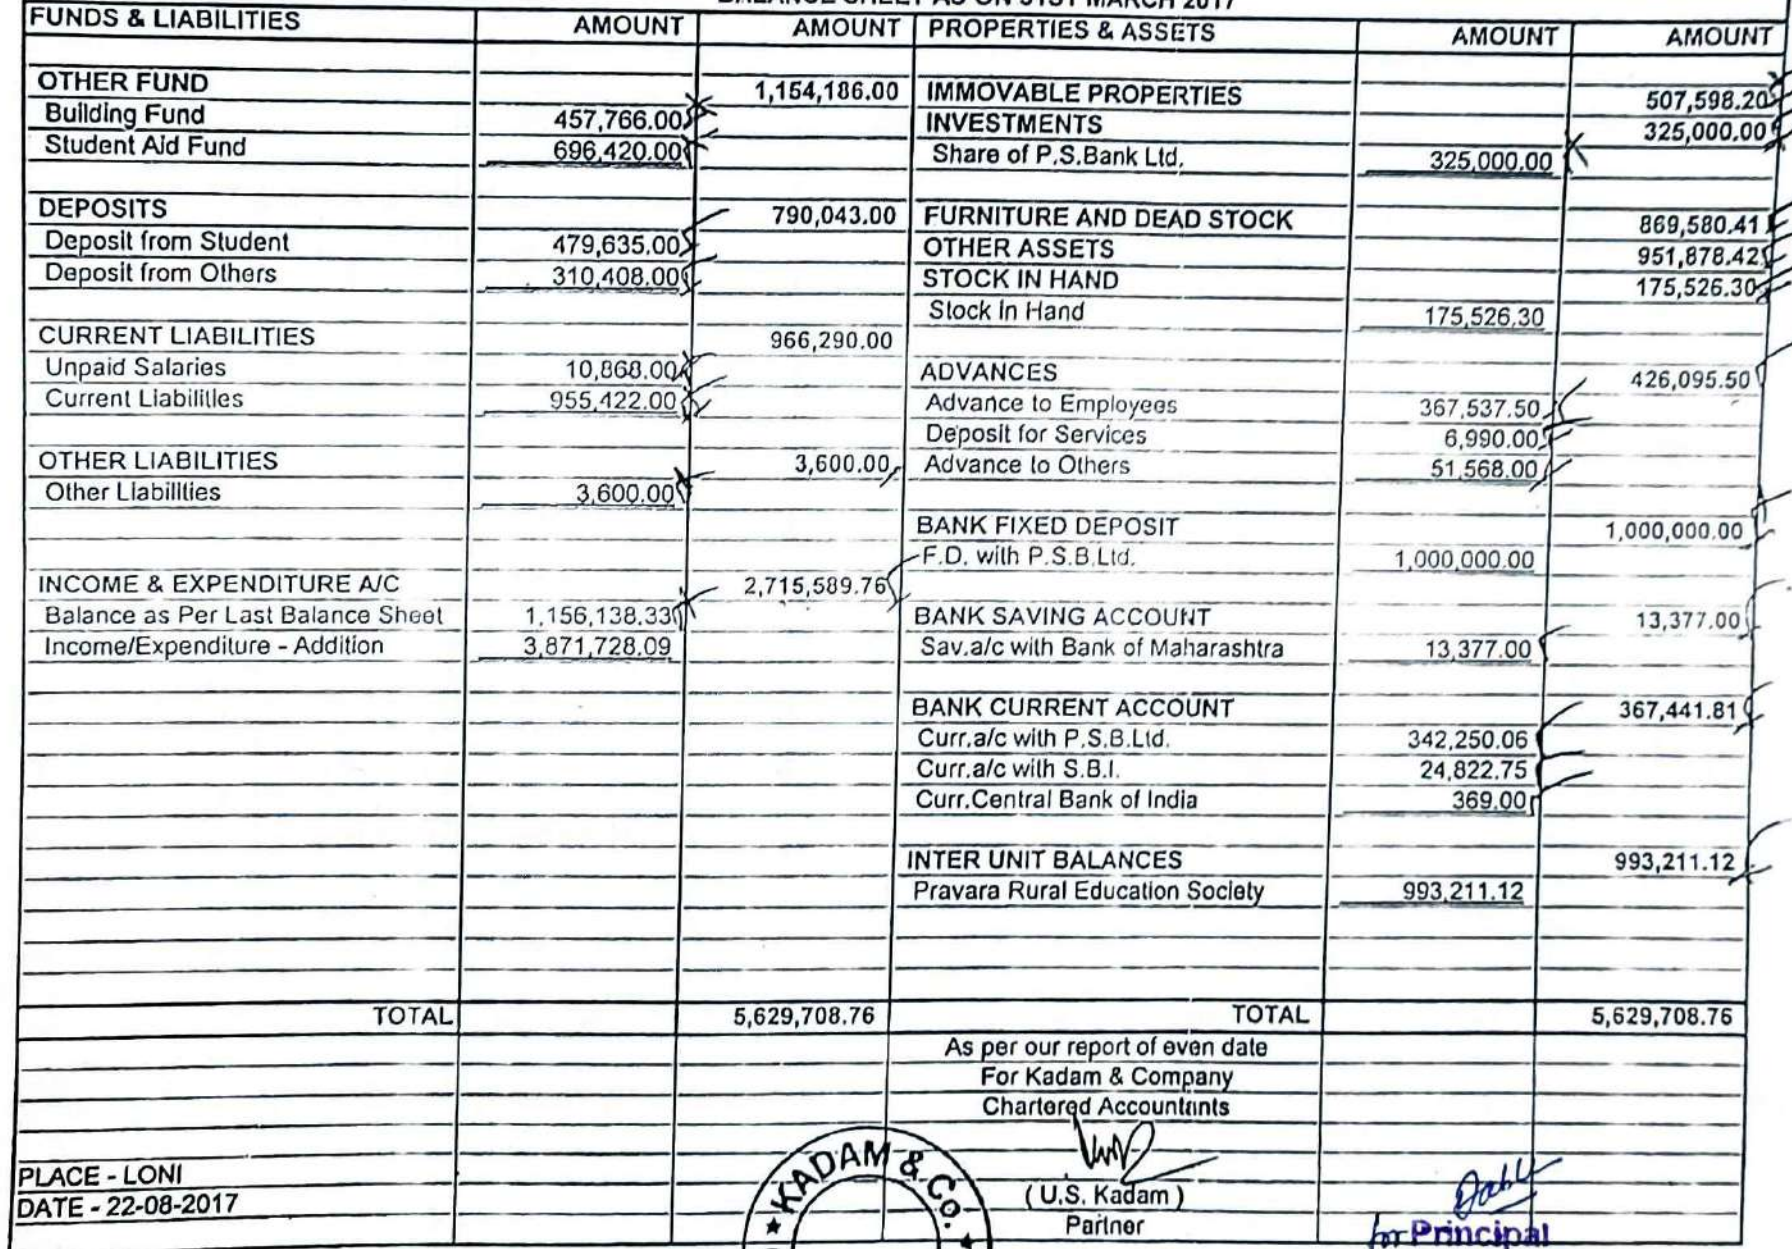 BALANCE SHEET AS ON 31ST MARCH 2017
FUNDS & LIABILITIES AMOUNT AMOUNT PROPERTIES & ASSETS AMOUNT AMOUNT
OTHER FUND 1,154,186.00 IMMOVABLE PROPERTIES 507,598.20
Building Fund 457,766.00 INVESTMENTS 325,000.00
Student Aid Fund 696,420.00 Share of P.S.Bank Ltd. 325,000.00
DEPOSITS 790,043.00 FURNITURE AND DEAD STOCK 869,580.41
Deposit from Student 479,635.00 OTHER ASSETS 951,878.42
Deposit from Others 310,408.00 STOCK IN HAND 175,526.30
Stock In Hand 175,526.30
CURRENT LIABILITIES 966,290.00
Unpaid Salaries 10,868.00 ADVANCES 426,095.50
Current Liabilities 955,422.00 Advance to Employees 367,537.50
Deposit for Services 6,990.00
OTHER LIABILITIES 3,600.00 Advance to Others 51,568.00
Other Liabilities 3,600.00
BANK FIXED DEPOSIT 1,000,000.00
F.D. with P.S.B.Ltd. 1,000,000.00
INCOME & EXPENDITURE A/C 2,715,589.76
Balance as Per Last Balance Sheet 1,156,138.33 BANK SAVING ACCOUNT 13,377.00
Income/Expenditure - Addition 3,871,728.09 Sav.a/c with Bank of Maharashtra 13,377.00
BANK CURRENT ACCOUNT 367,441.81
Curr.a/c with P.S.B.Ltd. 342,250.06
Curr.a/c with S.B.I. 24,822.75
Curr.Central Bank of India 369.00
INTER UNIT BALANCES 993,211.12
Pravara Rural Education Society 993,211.12
TOTAL 5,629,708.76 TOTAL 5,629,708.76
As per our report of even date
For Kadam & Company
Chartered Accountants
KADAM & Co.
PLACE - LONI
DATE - 22-08-2017 ( U.S. Kadam )
Partner for Principal